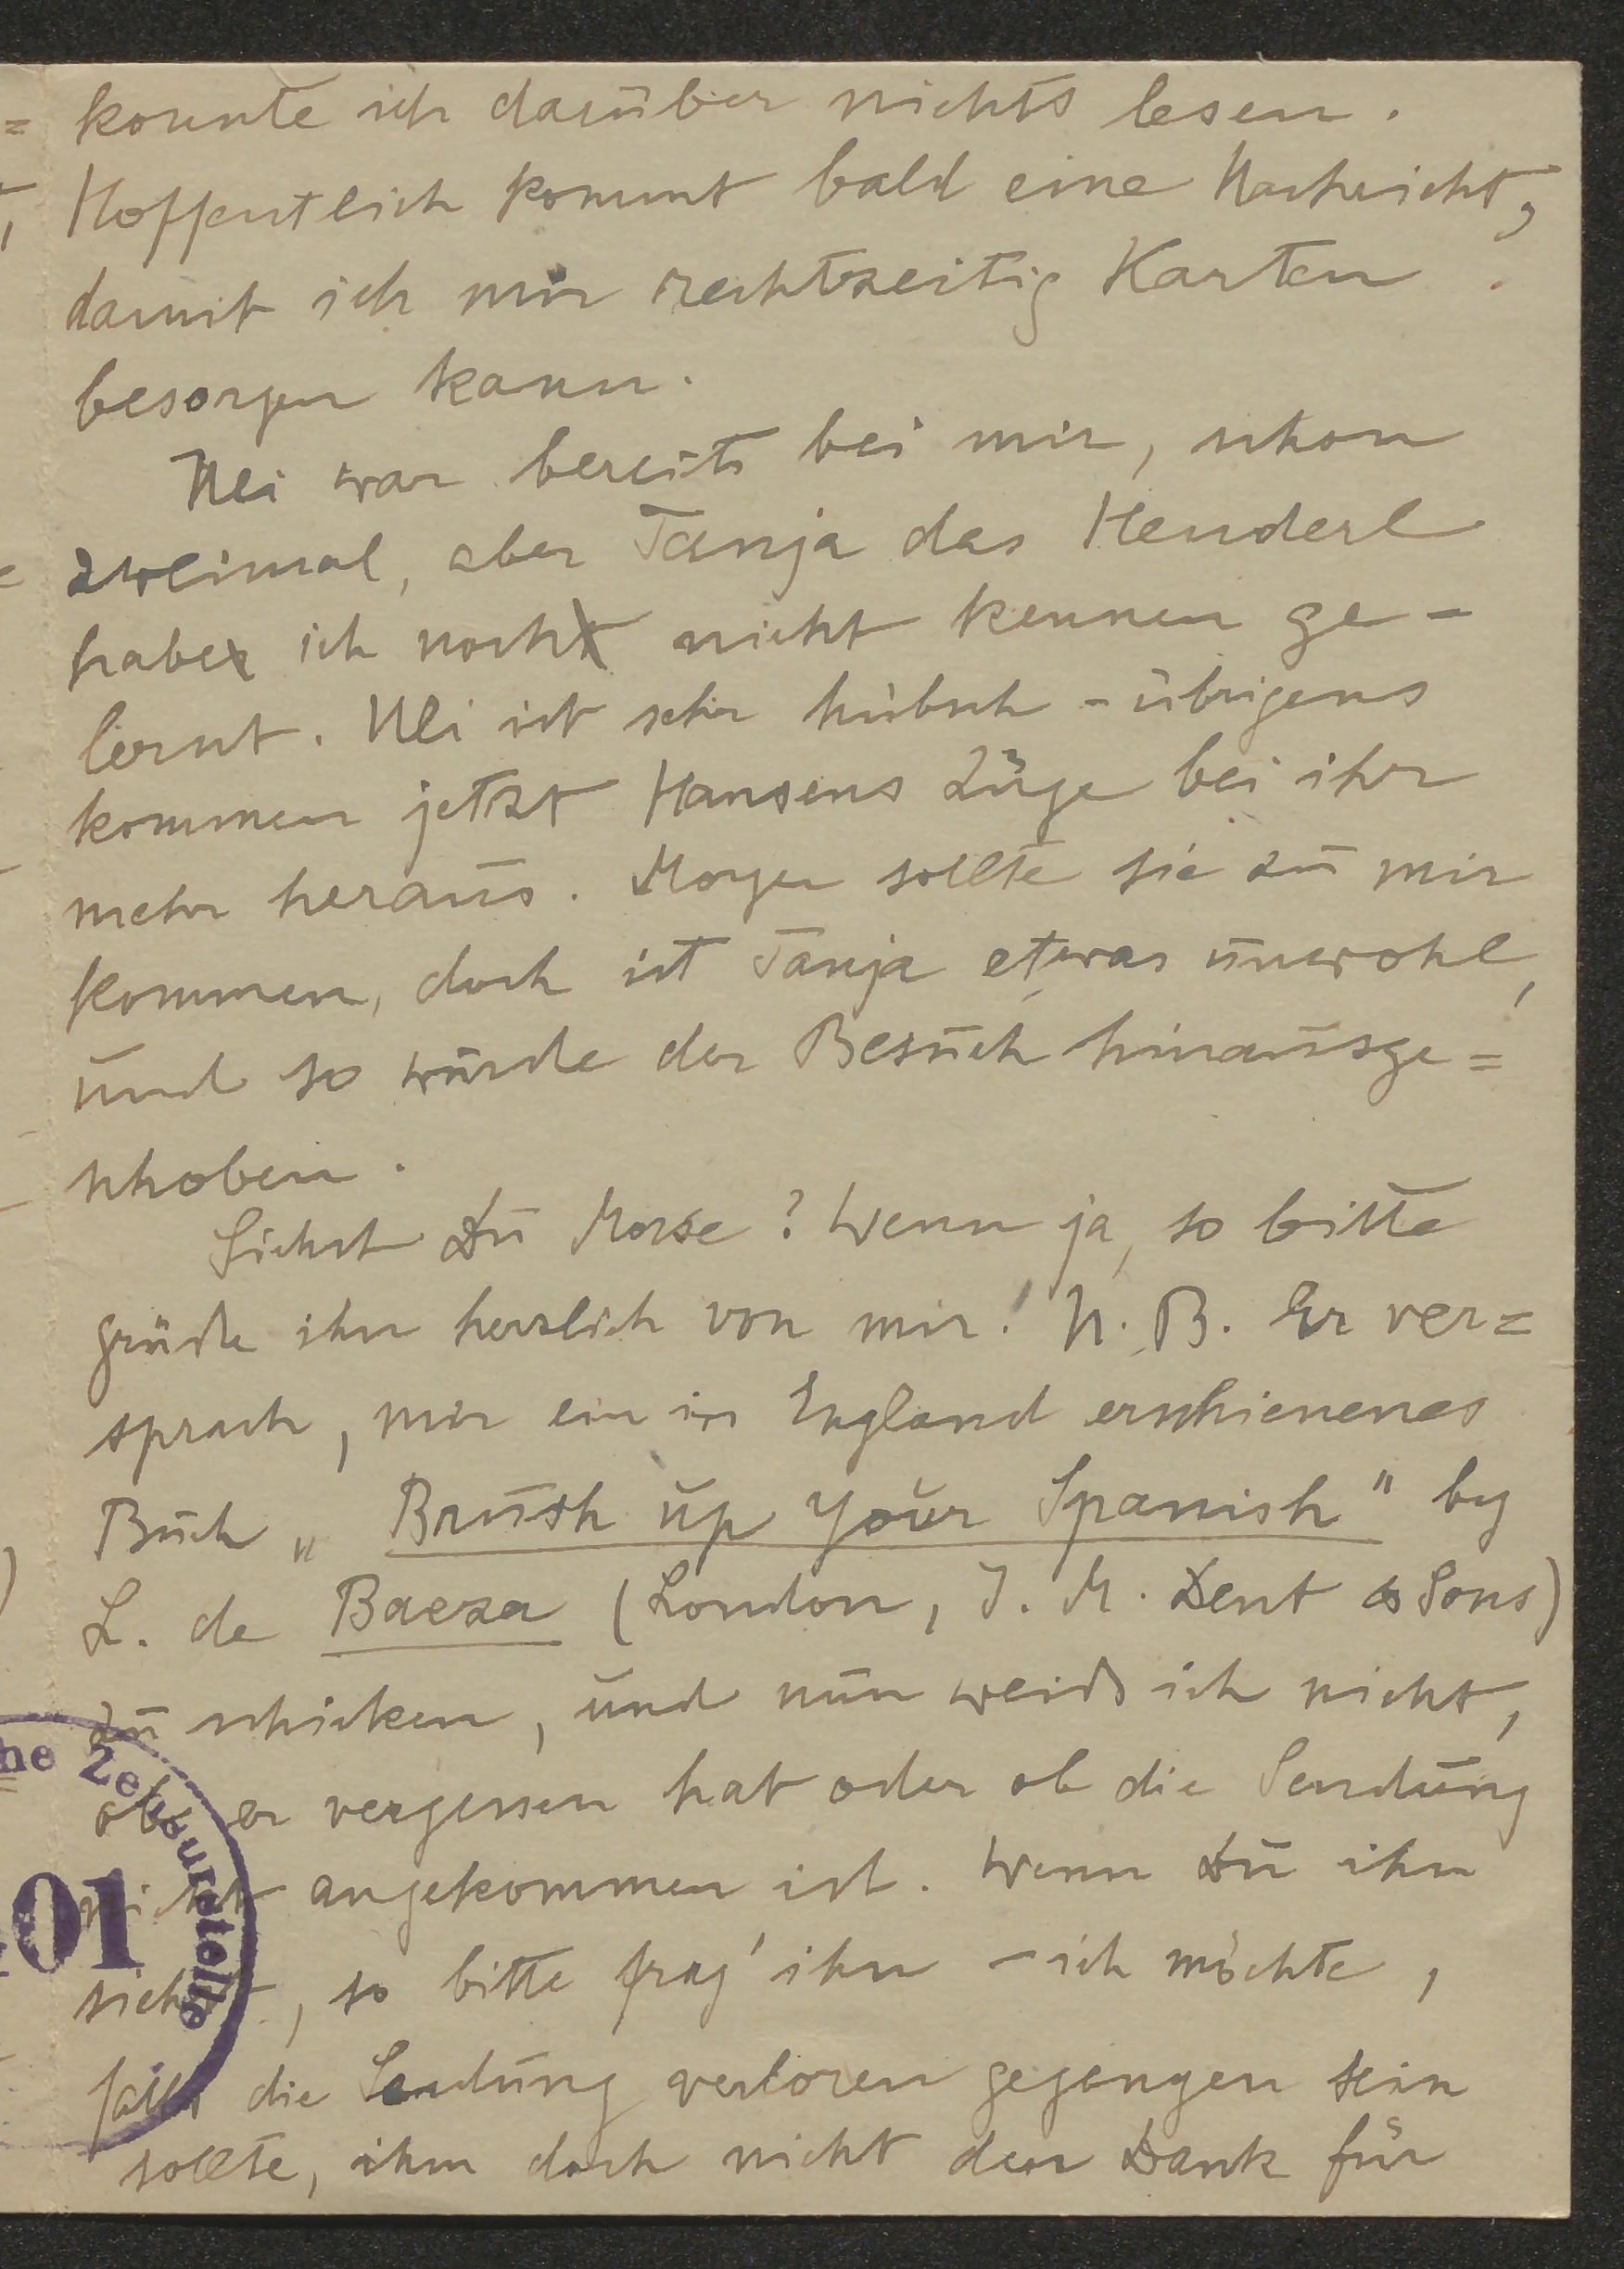 konnte ich darüber nichts lesen.
Hoffentlich kommt bald eine Nachricht,
damit ich mir rechtzeitig Karten
besorgen kann.
Uli war bereits bei mir, schon
zweimal, aber Tanja das Henderl
habe ich noch nicht kennen ge-
lernt. Uli ist sehr hübsch - übrigens
kommen jetzt Hansens Züge bei ihr
mehr heraus. Morgen sollte sie zu mir
kommen, doch ist Tanja etwas unwohl,
und so wurde der Besuch hinausge=
schoben.
Siehst Du Morse? Wenn ja, so bitte
grüße ihn herzlich von mir! N.B. Er ver=
sprach, mir ein in England erschienenes
Buch „Brush up your Spanish" by
L. de Baeza (London, J. M. Dent & Sons)
zu schicken, und nun weiß ich nicht,
ob er vergessen hat oder ob die Sendung
nicht angekommen ist. Wenn Du ihn
siehst, so bitte frag' ihn - ich möchte,
falls die Sendung verloren gegangen sein
sollte, ihm doch nicht den Dank für
he Zensurstelle
01